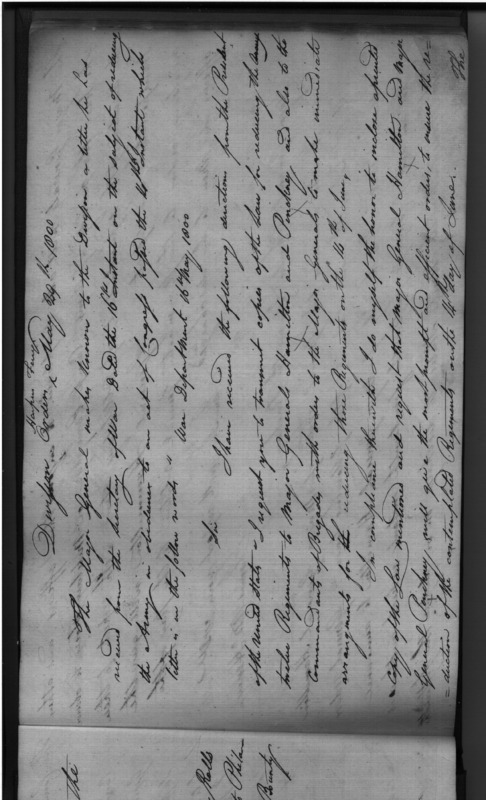 Division Orders
May 29th 1800
The Major General makes known to the Division a letter he has
received from the Secretary of War Dated the 16th Instant on the subject of reducing
the Army in obedience to an act of Congress passed the 14th Instant, which
letter is in the follow words, "War Department 16th May 1800
Sir I have received the following direction from the President
of the United States "I request you to transmit copies of the Law for reducing the
twelve Regiments to Major Generals Hamilton and Pinckney and also to the
Commandants of Brigades with orders to the Major Generals to make immediate
arrangements for the reducing those Regiments on the 14th of June,
In compliance therewith I do myself the honor to inclose a
Copy of the Law mentioned and request that Major General Hamilton and Major
General Pinckney will give the most prompt and efficient orders, to ensure the re=
=duction of the contemplated Regiments on the 14th day of June.
The
the
Rolls
to Phila
Bounty